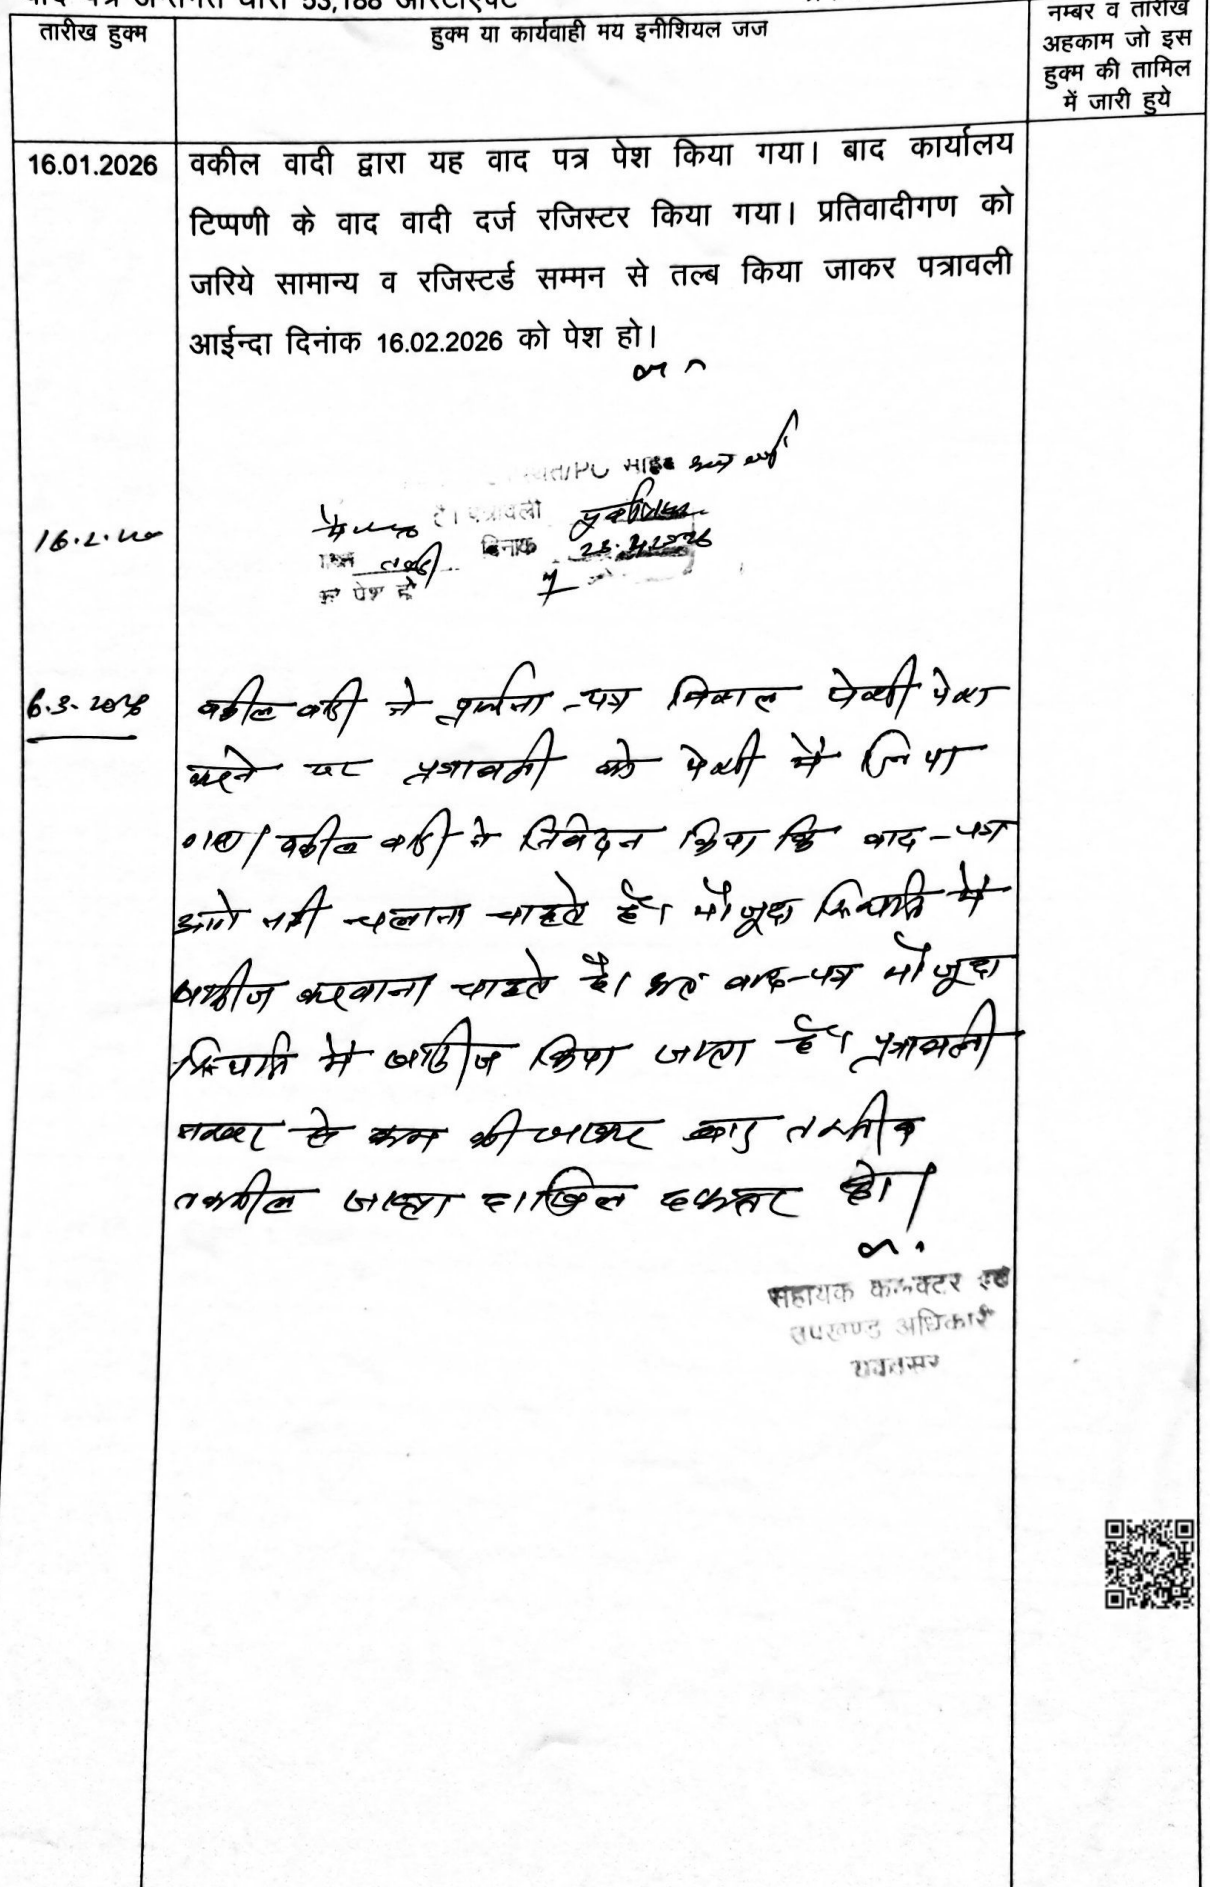 वाद पत्र अन्तर्गत धारा 53,188 आरटीएक्ट
तारीख हुक्म
हुक्म या कार्यवाही मय इनीशियल जज
नम्बर व तारीख
अहकाम जो इस
हुक्म की तामिल
में जारी हुये
16.01.2026
वकील वादी द्वारा यह वाद पत्र पेश किया गया। बाद कार्यालय
टिप्पणी के वाद वादी दर्ज रजिस्टर किया गया। प्रतिवादीगण को
जरिये सामान्य व रजिस्टर्ड सम्मन से तल्ब किया जाकर पत्रावली
आईन्दा दिनांक 16.02.2026 को पेश हो।
है। पत्रावली
दिनांक
पेश हो
6.3.2026
वकील वादी ने प्रार्थना-पत्र निकाल पेशी पेश
करने पर पत्रावली को पेशी में लिया
गया। वकील वादी ने निवेदन किया कि वाद-पत्र
आगे नही चलाना चाहते है। मौजूदा स्थिति में
खारीज करवाना चाहते है। अतः वाद-पत्र मौजूदा
स्थिति में खारीज किया जाता है। पत्रावली
नम्बर से कम की जाकर बाद
तकमील दाखिल दफ्तर हो।
सहायक कलक्टर एवं
उपखण्ड अधिकारी